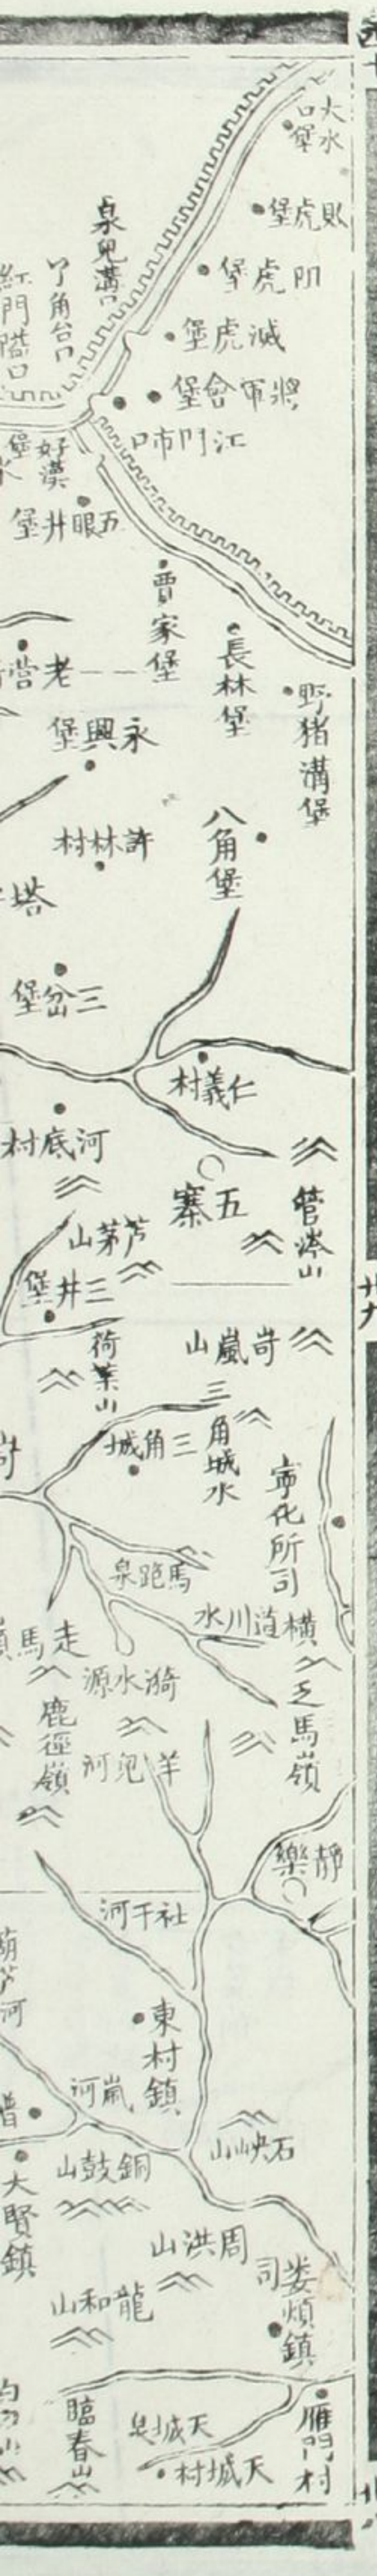 大水口堡
敗虎堡
阻虎堡
滅虎堡
將軍會堡
江門市口
泉兒溝口
丫角台口
紅門隘口
好漢
堡
五眼井堡
賈家堡
長林堡
野猪溝堡
老營
永興堡
八角堡
許林村
塔
三岔堡
仁義村
河底村
五寨
管涔山
芦茅山
三井堡
荷葉山
岢嵐山
三角城水
三角城
寧化所司
馬跑泉
橫道川水
走馬嶺
漪水源
鹿徑嶺
羊兒河
乏馬嶺
靜樂
社干河
葫芦河
東村鎮
嵐河
石峽山
銅鼓山
大賢鎮
周洪山
龍和山
娄煩鎮
司
臨春山
天城泉
天城村
雁門村
廿九